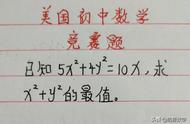 美国初中数学
竞赛题
已知 5x²+4y²=10x, 求
x²+y²的最值。